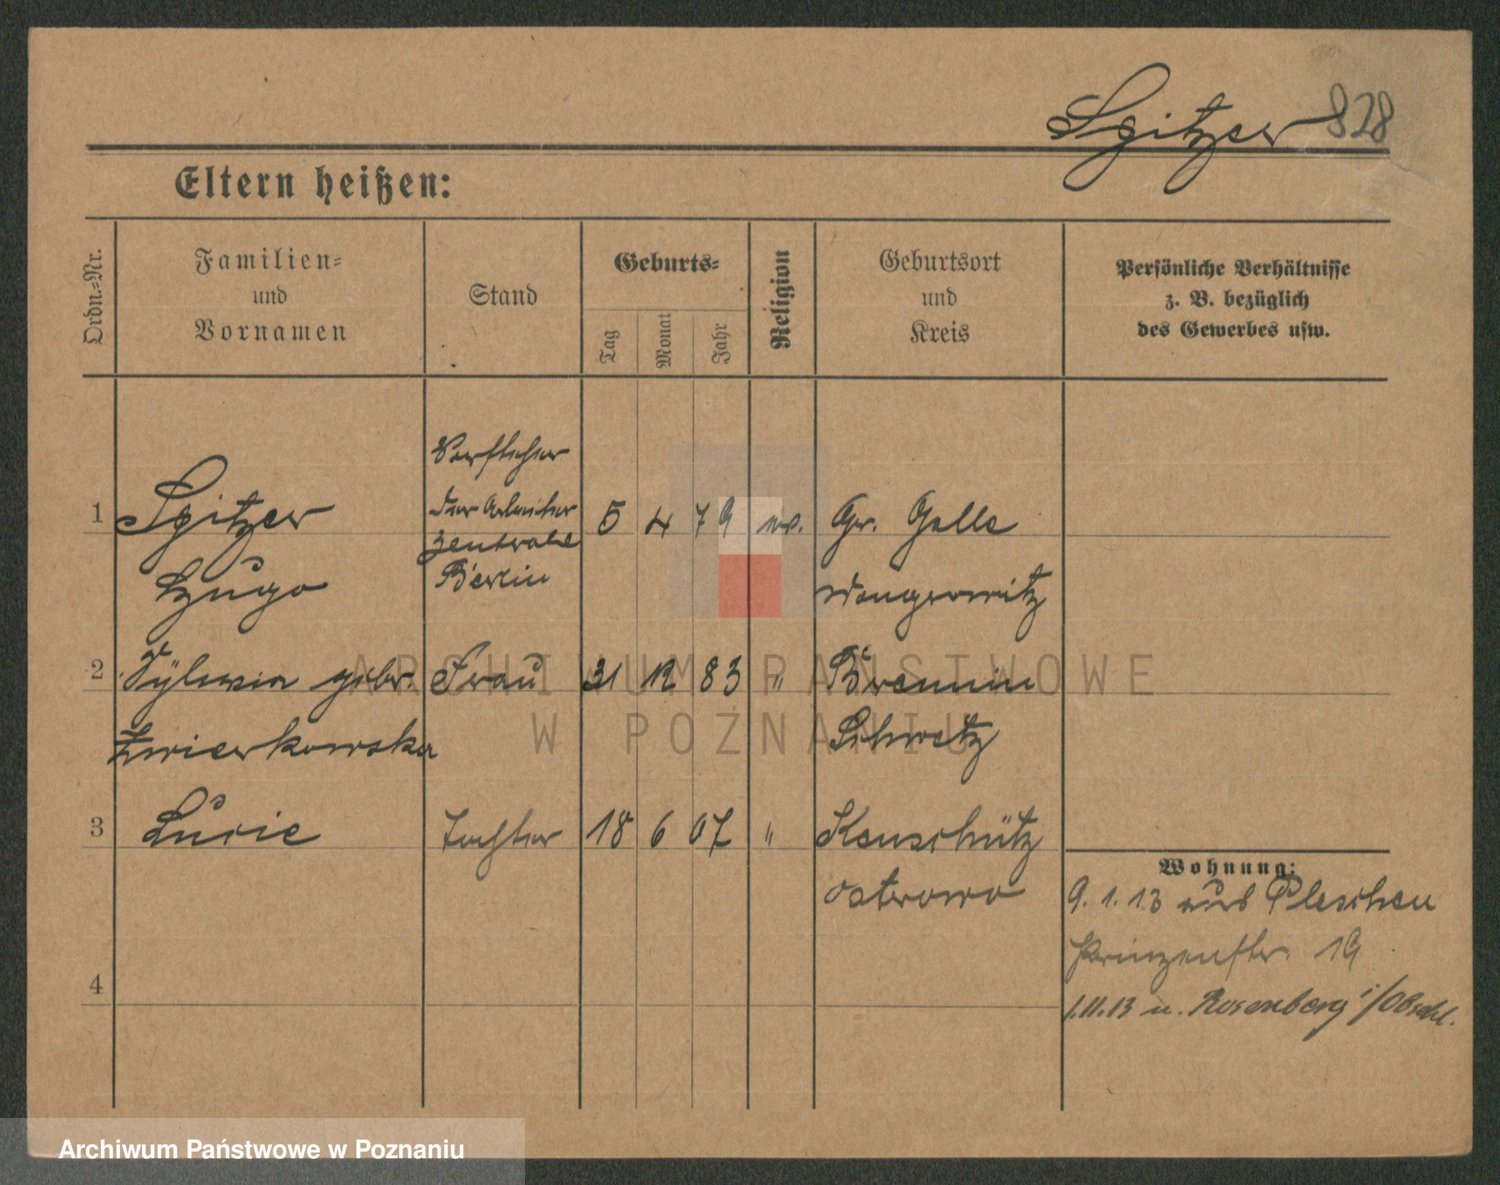 Spitzer 828
Eltern heißen:
Ordn.-Nr.
Familien-
und
Vornamen
Stand
Geburts-
Tag
Monat
Jahr
Religion
Geburtsort
und
Kreis
Persönliche Verhältnisse
z. B. bezüglich
des Gewerbes usw.
1
Spitzer
Hugo
Vorsteher
der Arbeiter
Zentrale
Berlin
5 4 79 ev. Gr. Gelle
Wongrowitz
2
geb. Frau 31 12 83 "
Zwierkowska
Schwetz
3
Lucie Tochter 18 6 07 " Kenschütz
Ostrowo
4
Wohnung:
9.1.13 aus Pleschen
Prinzenstr. 19
1.11.13 n. Rosenberg i/Obschl.
ARCHIWUM PAŃSTWOWE
W POZNANIU
Archiwum Państwowe w Poznaniu